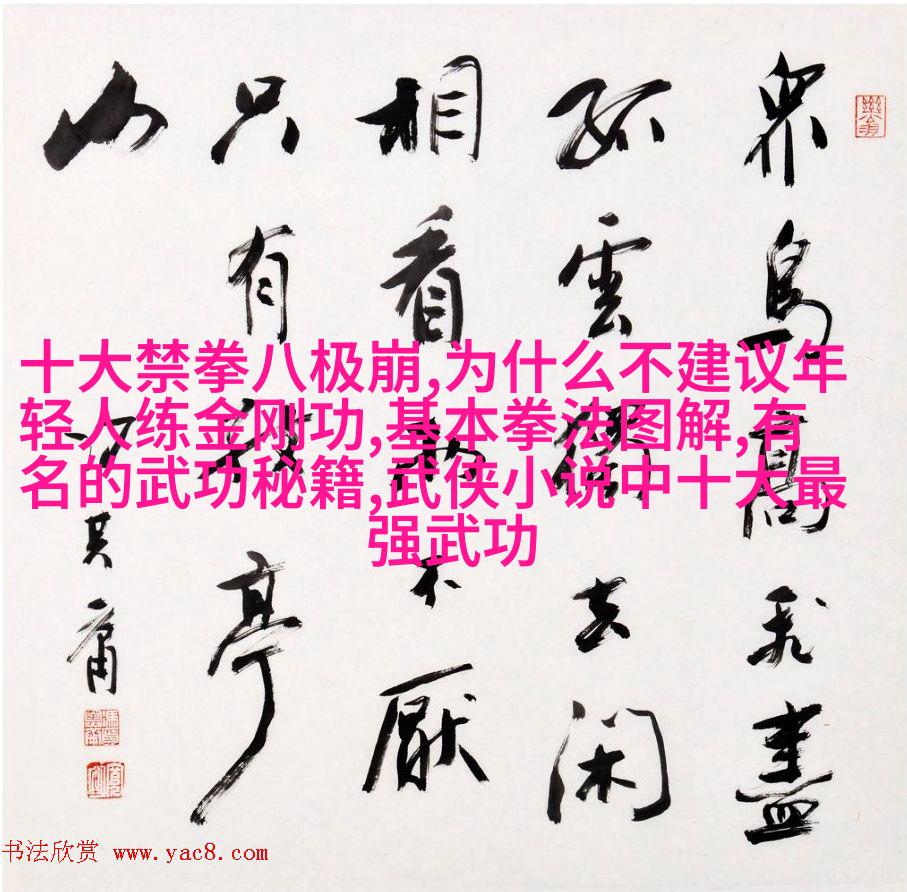 眾鳥高飛盡
孤雲獨去閑
相看兩不厭
只有敬亭
山
馮其庸
十大禁拳八极崩,为什么不建议年
轻人练金刚功,基本拳法图解,有
名的武功秘籍,武侠小说中十大最
强武功
书法欣赏 www.yac8.com